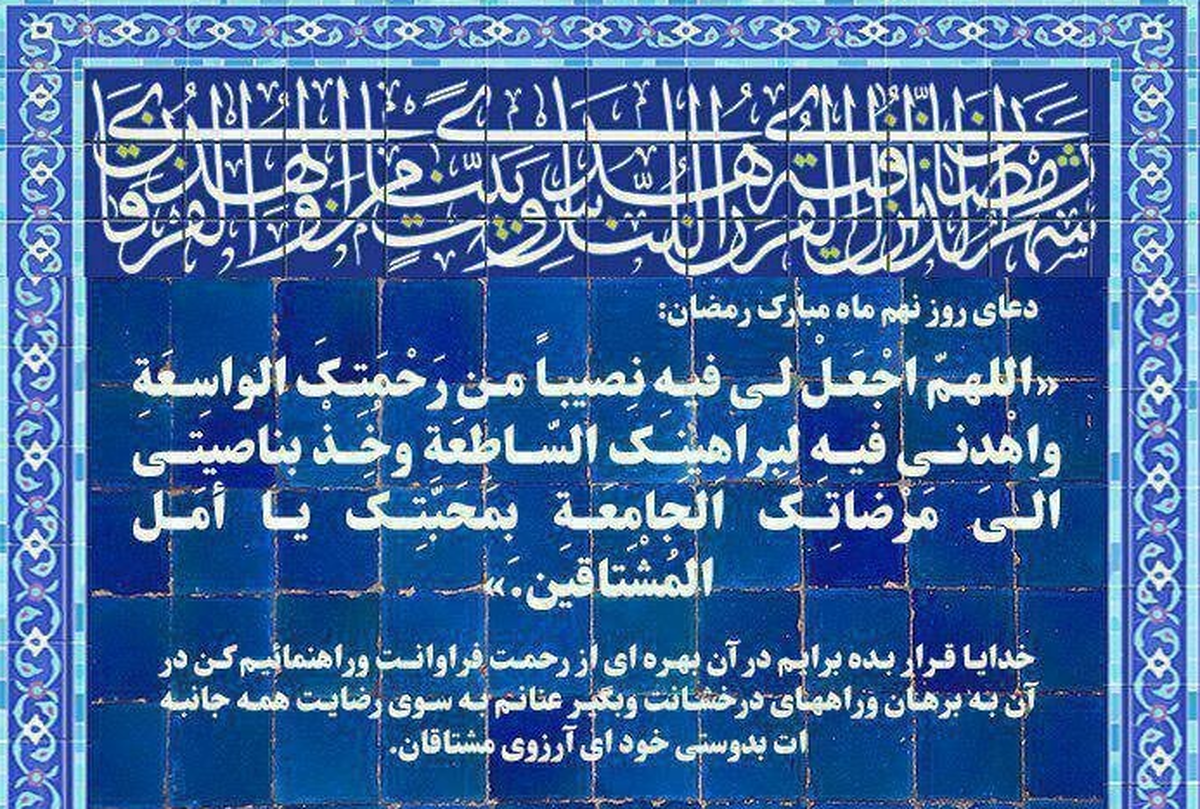 شهر رمضان الذی انزل فیه القرآن هدی للناس و بینات من الهدی و الفرقان
دعای روز نهم ماه مبارک رمضان:
«اللهمّ اجْعَلْ لی فیه نَصیباً من رَحْمَتِکَ الواسعَةِ
واهْدنی فیه لِبراهِینِکَ السّاطعَة وخُذْ بناصیَتی
الی مَرْضاتِکَ الجامِعَةِ بمَحَبَّتِکَ یا أمَل
المُشْتاقین.»
خدایا قرار بده برایم در آن بهره ای از رحمت فراوانت وراهنمائیم کن در
آن به برهان وراههای درخشانت وبگیر عنانم به سوی رضایت همه جانبه
ات بدوستی خود ای آرزوی مشتاقان.